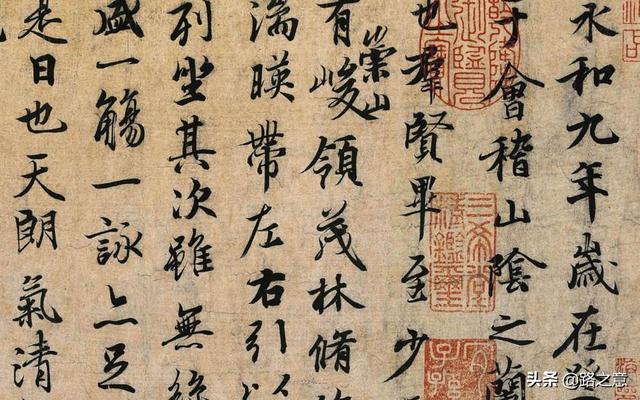 永和九年歲在
于會稽山陰之蘭
也羣賢畢至少
有崇山峻領茂林脩
湍暎帶左右引以
列坐其次雖無絲
盛一觴一詠亦足
是日也天朗氣清
三希堂
精鑑璽
宜
子孫
头条 @路之意